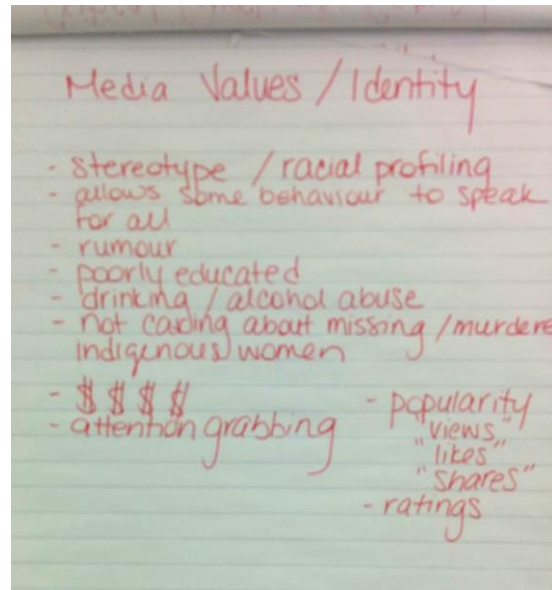 Media Values / Identity
- stereotype / racial profiling
- allows some behaviour to speak
for all
- rumour
- poorly educated
- drinking / alcohol abuse
- not caring about missing / murdere
indigenous women
- $ $ $ $
- attention grabbing
- popularity
"views"
"likes"
"shares"
- ratings